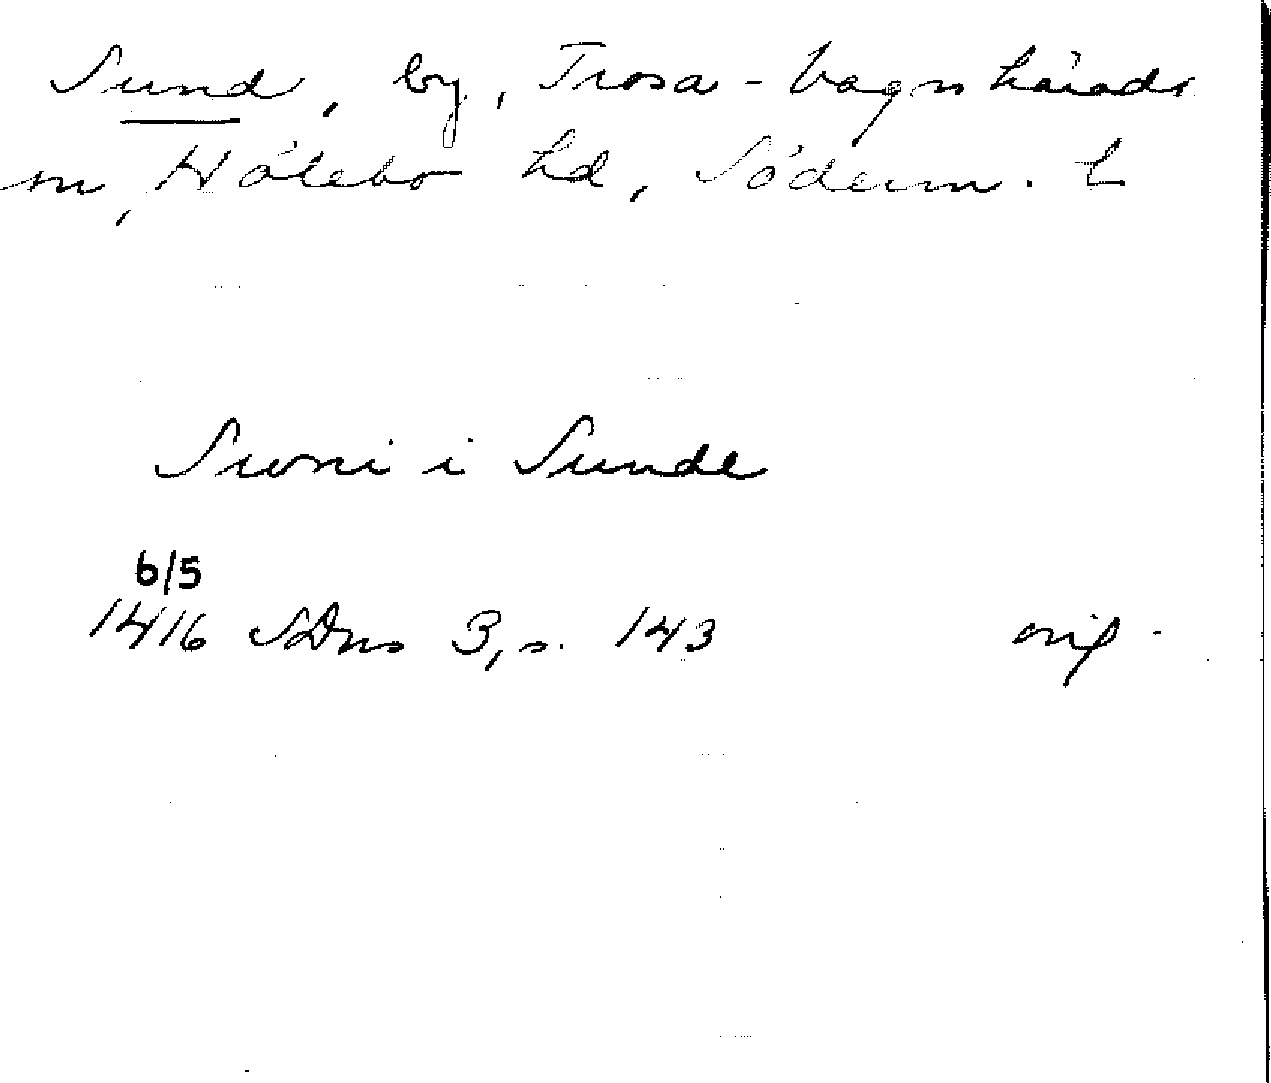 Sund, by, Trosa-Vagnhärads
sn, Hölebo hd, Söderm. l.
Swni i Sunde
6/5
1416 SDns 3, s. 143 orig.